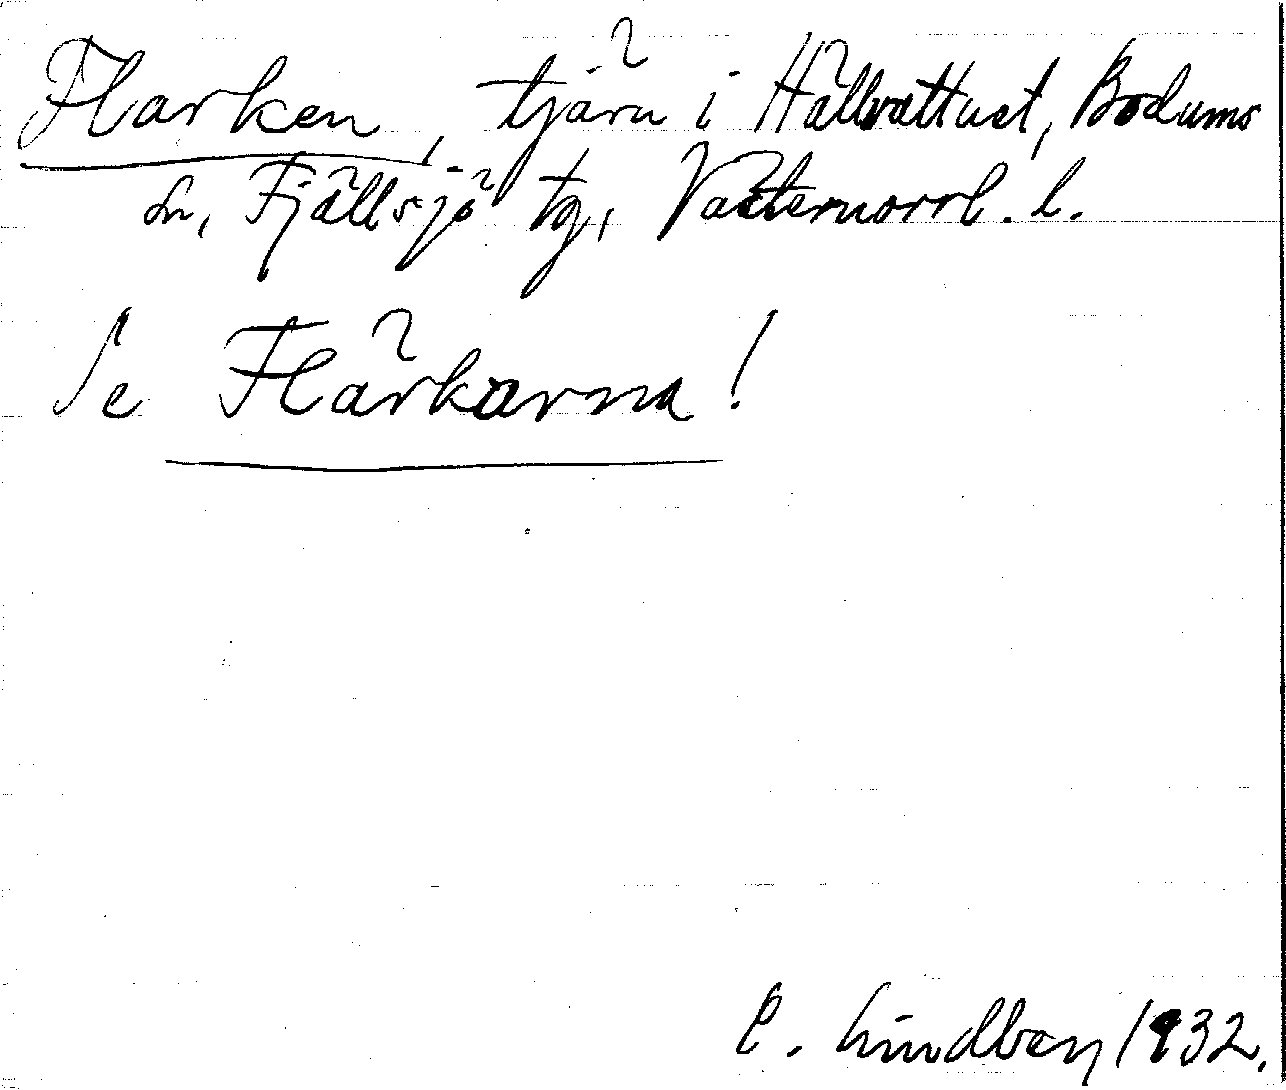 Flarken, tjärn i Hällvattnet, Bodums
sn, Fjällsjö tg, Västernorrl. l.
Se Flärkarna!
C. Lindberg 1932.